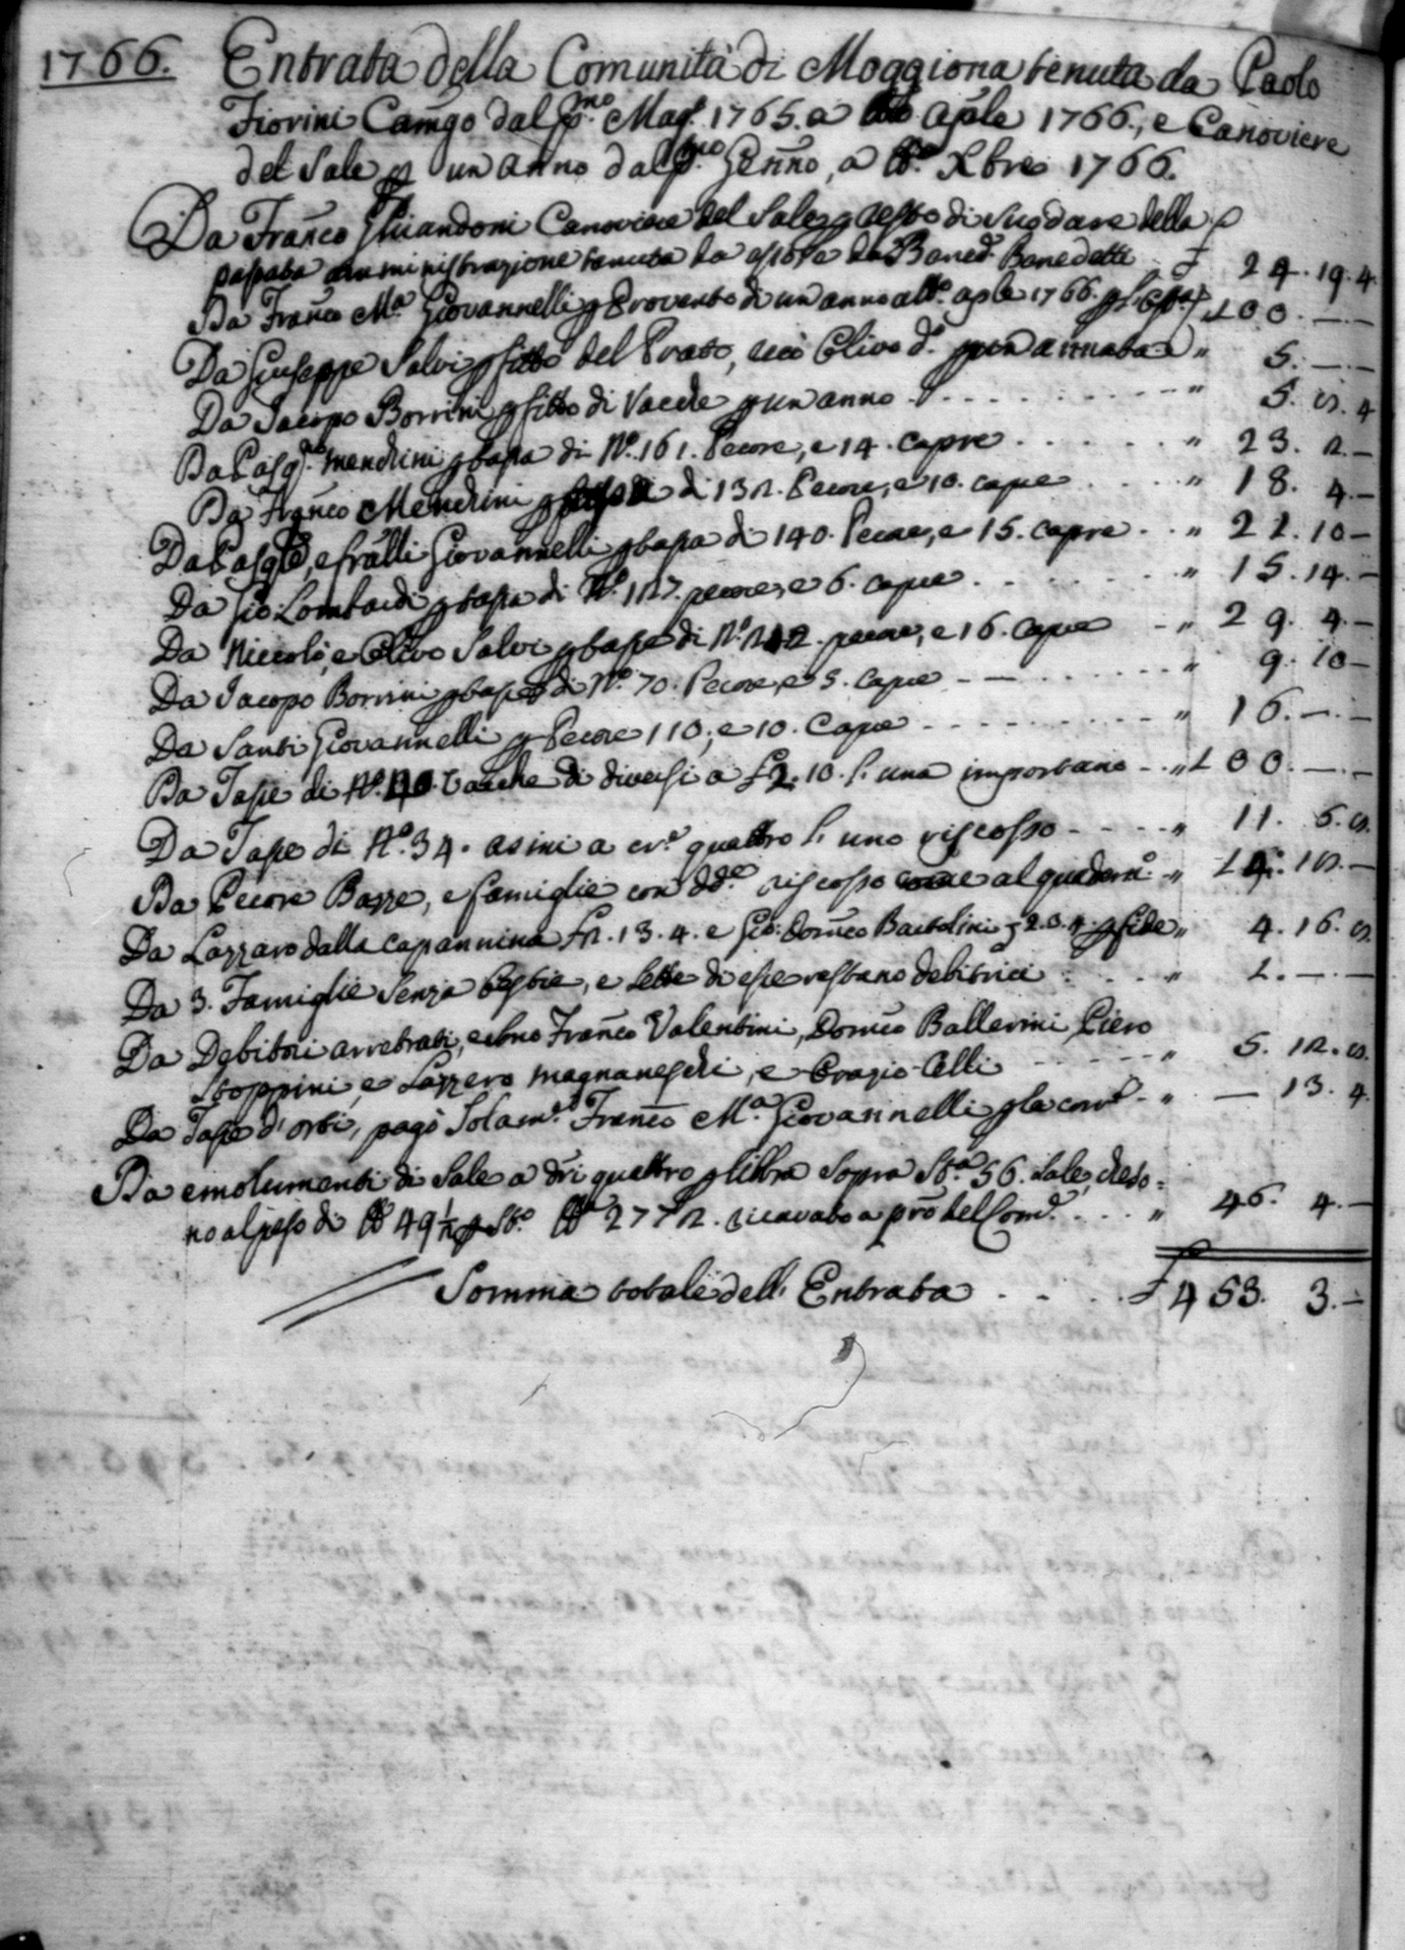 1766. Entrata della Comunità di Moggiona tenuta da Paolo
Fiorini Camgo dal pmo. Magº. 1765. a aple 1766., e Canoviere
del Sale p un anno dal pmo. Genno, a Xbre 1766.
Da Franco Ghiandoni Canoviere del Sale p resto di Suo dare della
passata amministrazione tenuta da Bened. Benedetti £ 24. 19. 4.
Da Franco Ma. Giovannelli p Provento di un anno aple 1766. 100. —. —
Da Giuseppe Salvi p fitto del Prato, Olivo dº. p un annata " 5. —. —
Da Jacopo Borrini p fitto di Vacche p un anno . . . . . " 5. 12. 4
Da Pasqe. Mendrini p tassa di Nº. 161. Pecore, e 14. capre . . . . . " 23. 2. —
Da Franco Mendrini p tassa di 132. Pecore, e 10. capre . . . . " 18. 4. —
Da Pasqle, e fratlli Giovannelli p tassa di 140. Pecore, e 15. capre . . " 21. 10 —
Da Gio: Lombardi p tassa di Nº. 127. pecore, e 6. capre . . . . . " 15. 14. —
Da Niccolò, e Olivo Salvi p tassa di Nº. 212. pecore, e 16. Capre - " 29. 4. —
Da Jacopo Borrini p tassa di Nº. 70. Pecore, e 5. Capre - - . . . . . " 9. 10 —
Da Santi Giovannelli p Pecore 110, e 10. Capre . . . . . . . . " 16. —. —
Da Tasse di Nº. 40. Vacche di diversi a £ 2. 10. l'una importano - . " 100. —. —
Da Tasse di Nº. 34. asini a cre. quattro l'uno riscosso - - - - " 11. 6. 8.
Da Pecore Bazze, e famiglie con riscosso come al quadernº. - " 14. 12. —
Da Lazzaro dalla Capannina £ 2. 13. 4. e Gio: Domco Bartolini £ 2. 3. 4. p fide " 4. 16. 8.
Da 3. Famiglie Senza bestie, e Sette di esse restano debitrici . . . . " 2. —. —
Da Debitori arretrati, Franco Valentini, Domco Ballerini Piero
Stoppini, e Lazzero Magnaneschi, e Orazio Celli - - - - - " 5. 12. 8.
Da Tasse d'orti, pagò Solamte. Franco Ma. Giovannelli p la comtà. - " — 13. 4.
Da emolumenti di Sale a dri quattro p libbra Sopra Sta. 56. Sale, cheso=
no al peso di lb 49½ p Sto. lb 2772. ricavato a prò del Comº. . . . " 46. 4. —
Somma totale dell' Entrata . . . . £ 453. 3. —